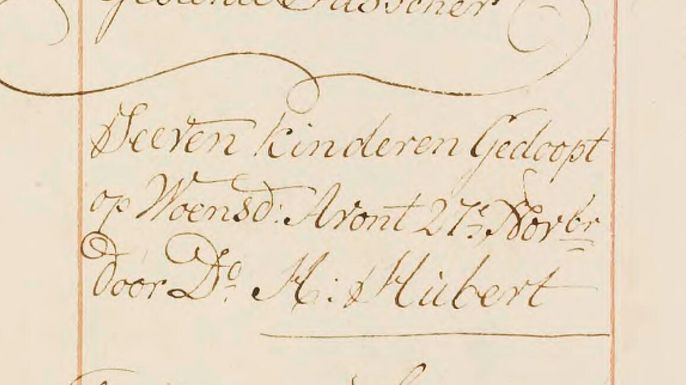 Seeven kinderen Gedoopt
op Woensd: Avont 27e. Novbr
door Do. H: Hubert